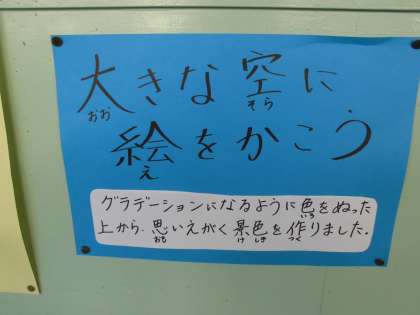 大きな空に
おお そら
絵をかこう
え
グラデーションになるように色をぬった
いろ
上から、思いえがく景色を作りました。
おも けしき つく